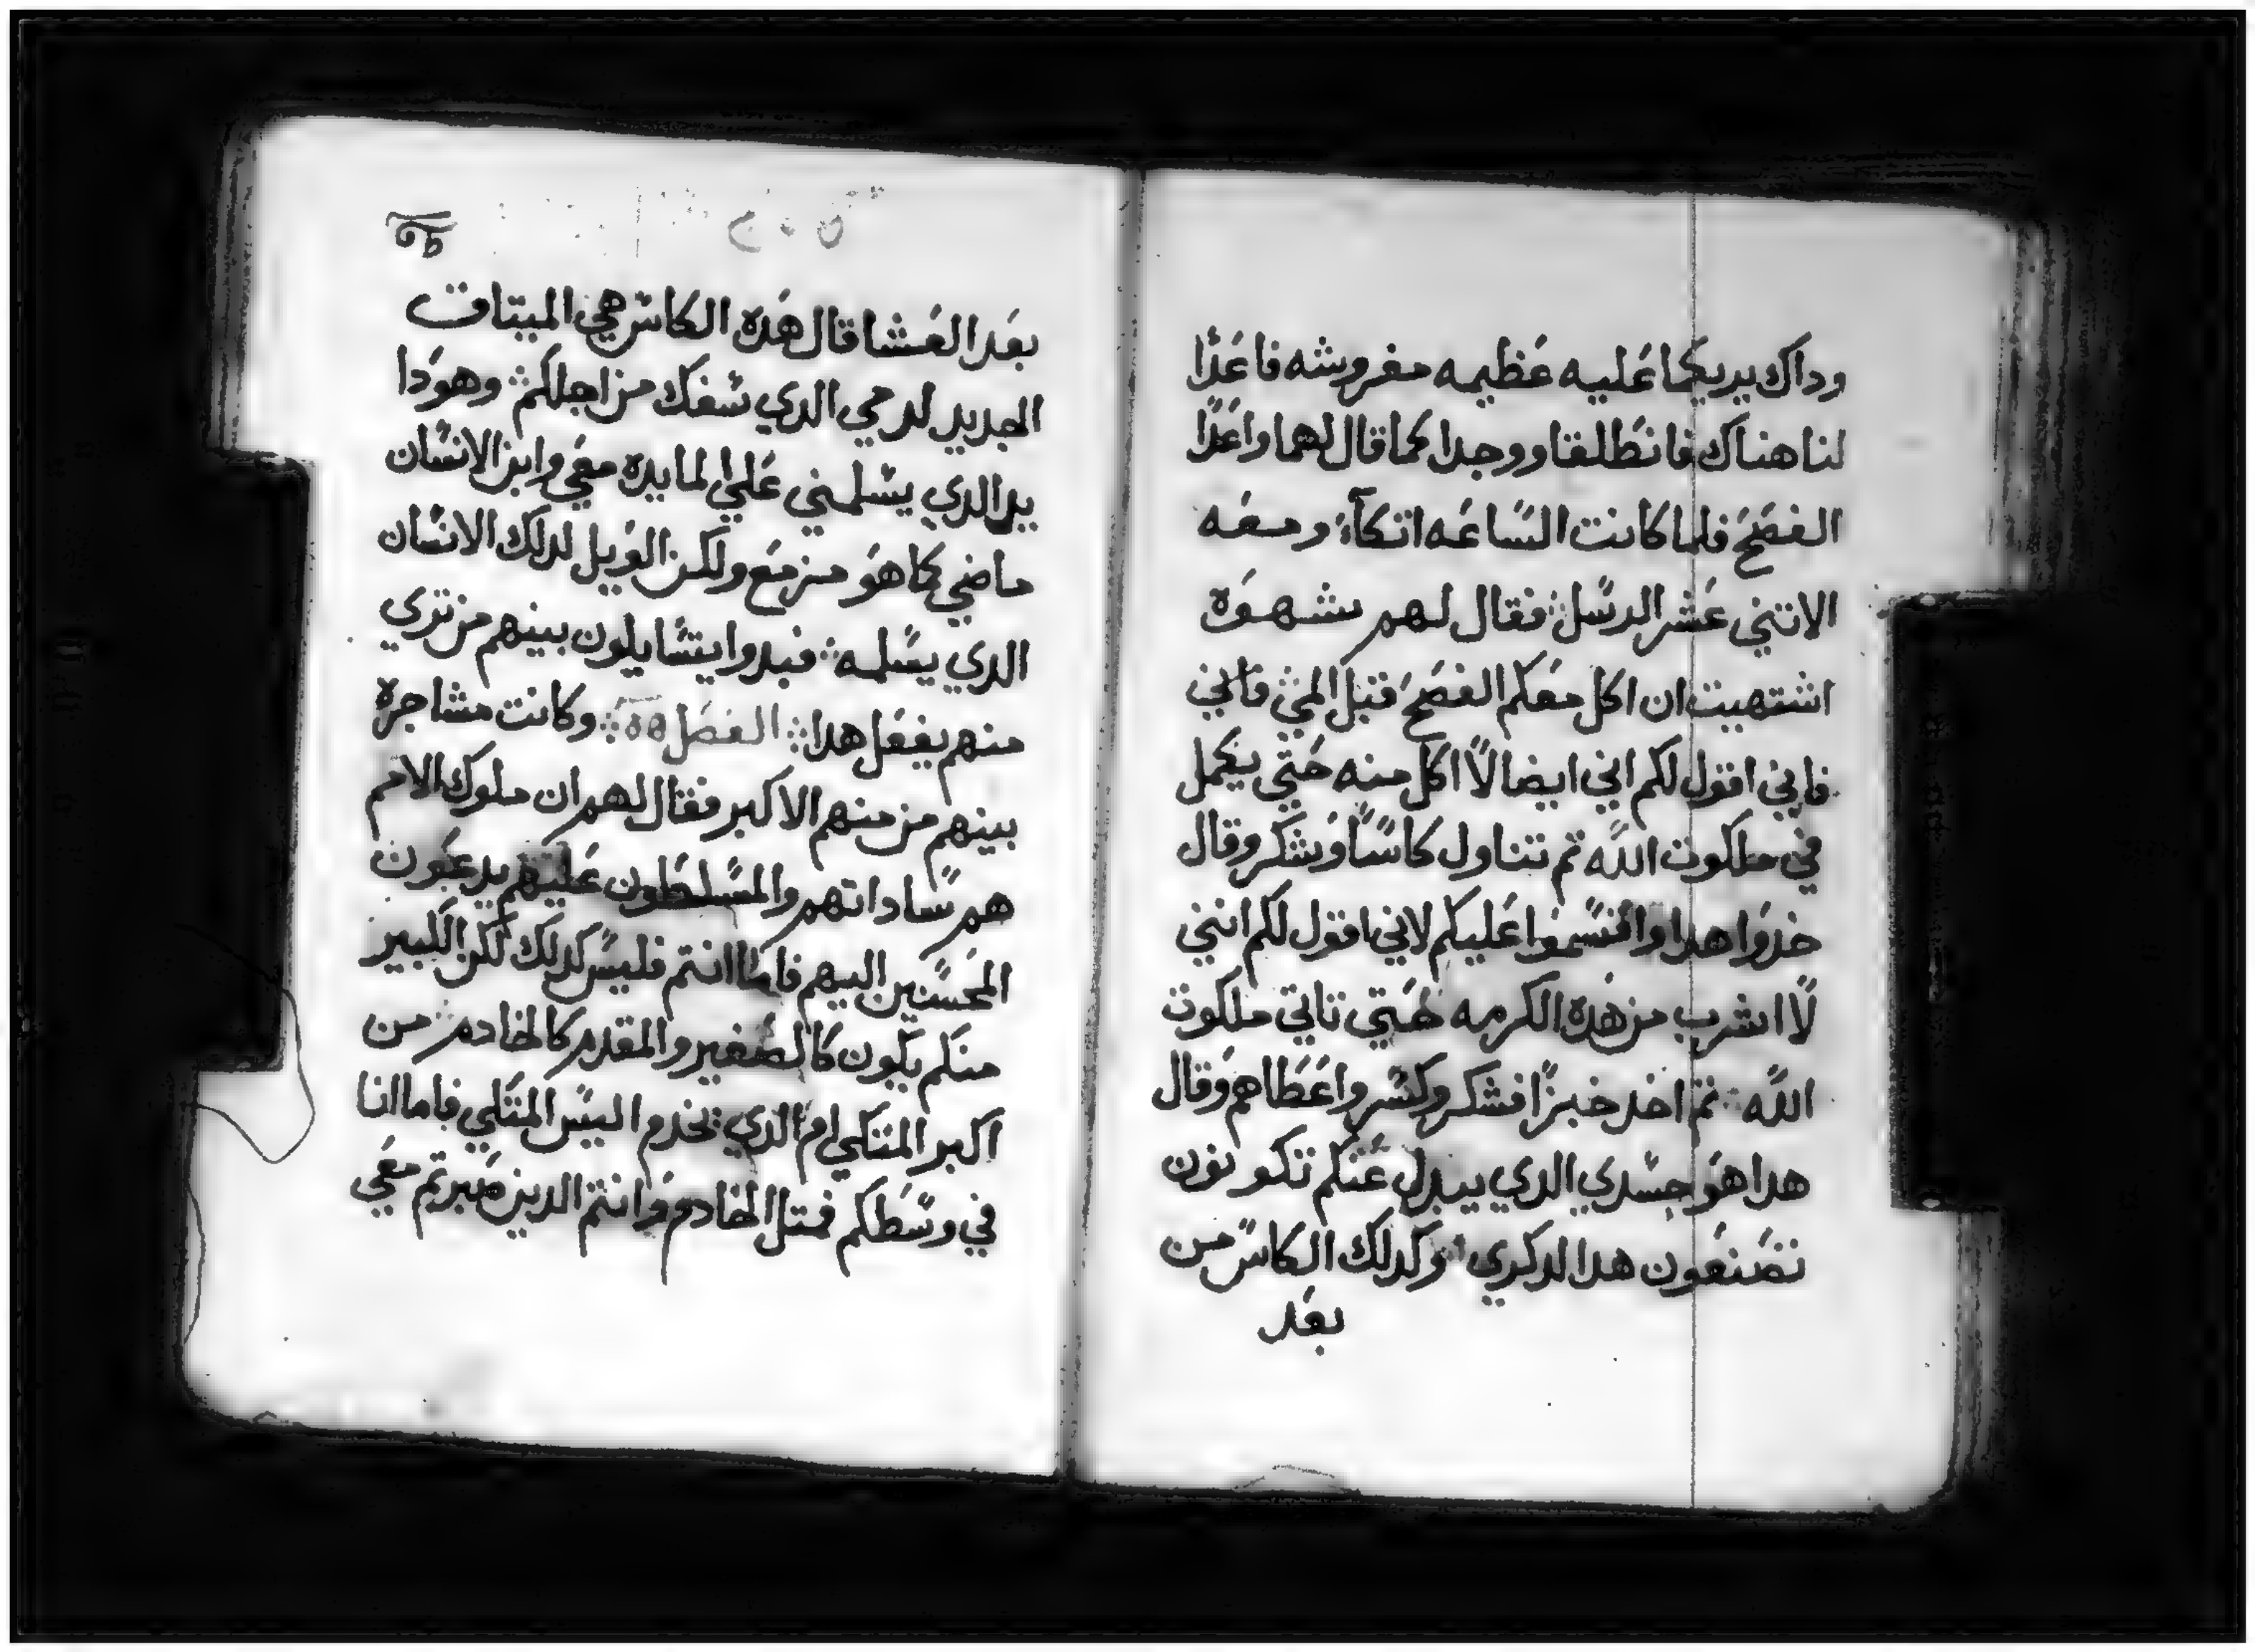 وداك يريكما عليه عظيمه مفروشه فاعدا
لنا هناك فانطلقا ووجدا كما قال لهما واعدا
الفصح فلما كانت الساعه اتكا ومعه
الاتني عشر الرسل فقال لهم شهوه
اشتهيت ان اكل معكم الفصح قبل المي فاني
فاني اقول لكم اني ايضا لا اكل منه حتي يكمل
في ملكوت الله تم تناول كاسا وشكر وقال
خدوا هدا واقسموا عليكم لاني اقول لكم انني
لا اشرب من هده الكرمه حتي تاتي ملكوت
الله تم اخد خبزا فشكر وكسر واعطاهم وقال
هدا هو جسدي الدي يبدل عنكم تكونون
تصنعون هدا لدكري وكدلك الكاس من
بعد
بعد العشا قال هده الكاس هي الميتاق
الجديد لدمي الدي سفك من اجلكم وهودا
يد الدي يسلمني علي المايده معي وابن الانسان
ماضي كما هو مزمع ولكن الويل لدلك الانسان
الدي يسلمه فبدوا يتسايلون بينهم من تري
منهم يفعل هدا الفصل وكانت مشاجره
بينهم من منهم الاكبر فقال لهم ان ملوك الامم
هم ساداتهم والمسلطون عليهم يدعون
المحسنين اليهم فاما انتم فليس كدلك لكن الكبير
منكم يكون كالصغير والمقدم كالخادم من
اكبر المتكي ام الدي يخدم اليس المتكي فاما انا
في وسطكم فمتل الخادم وانتم الدين صبرتم معي